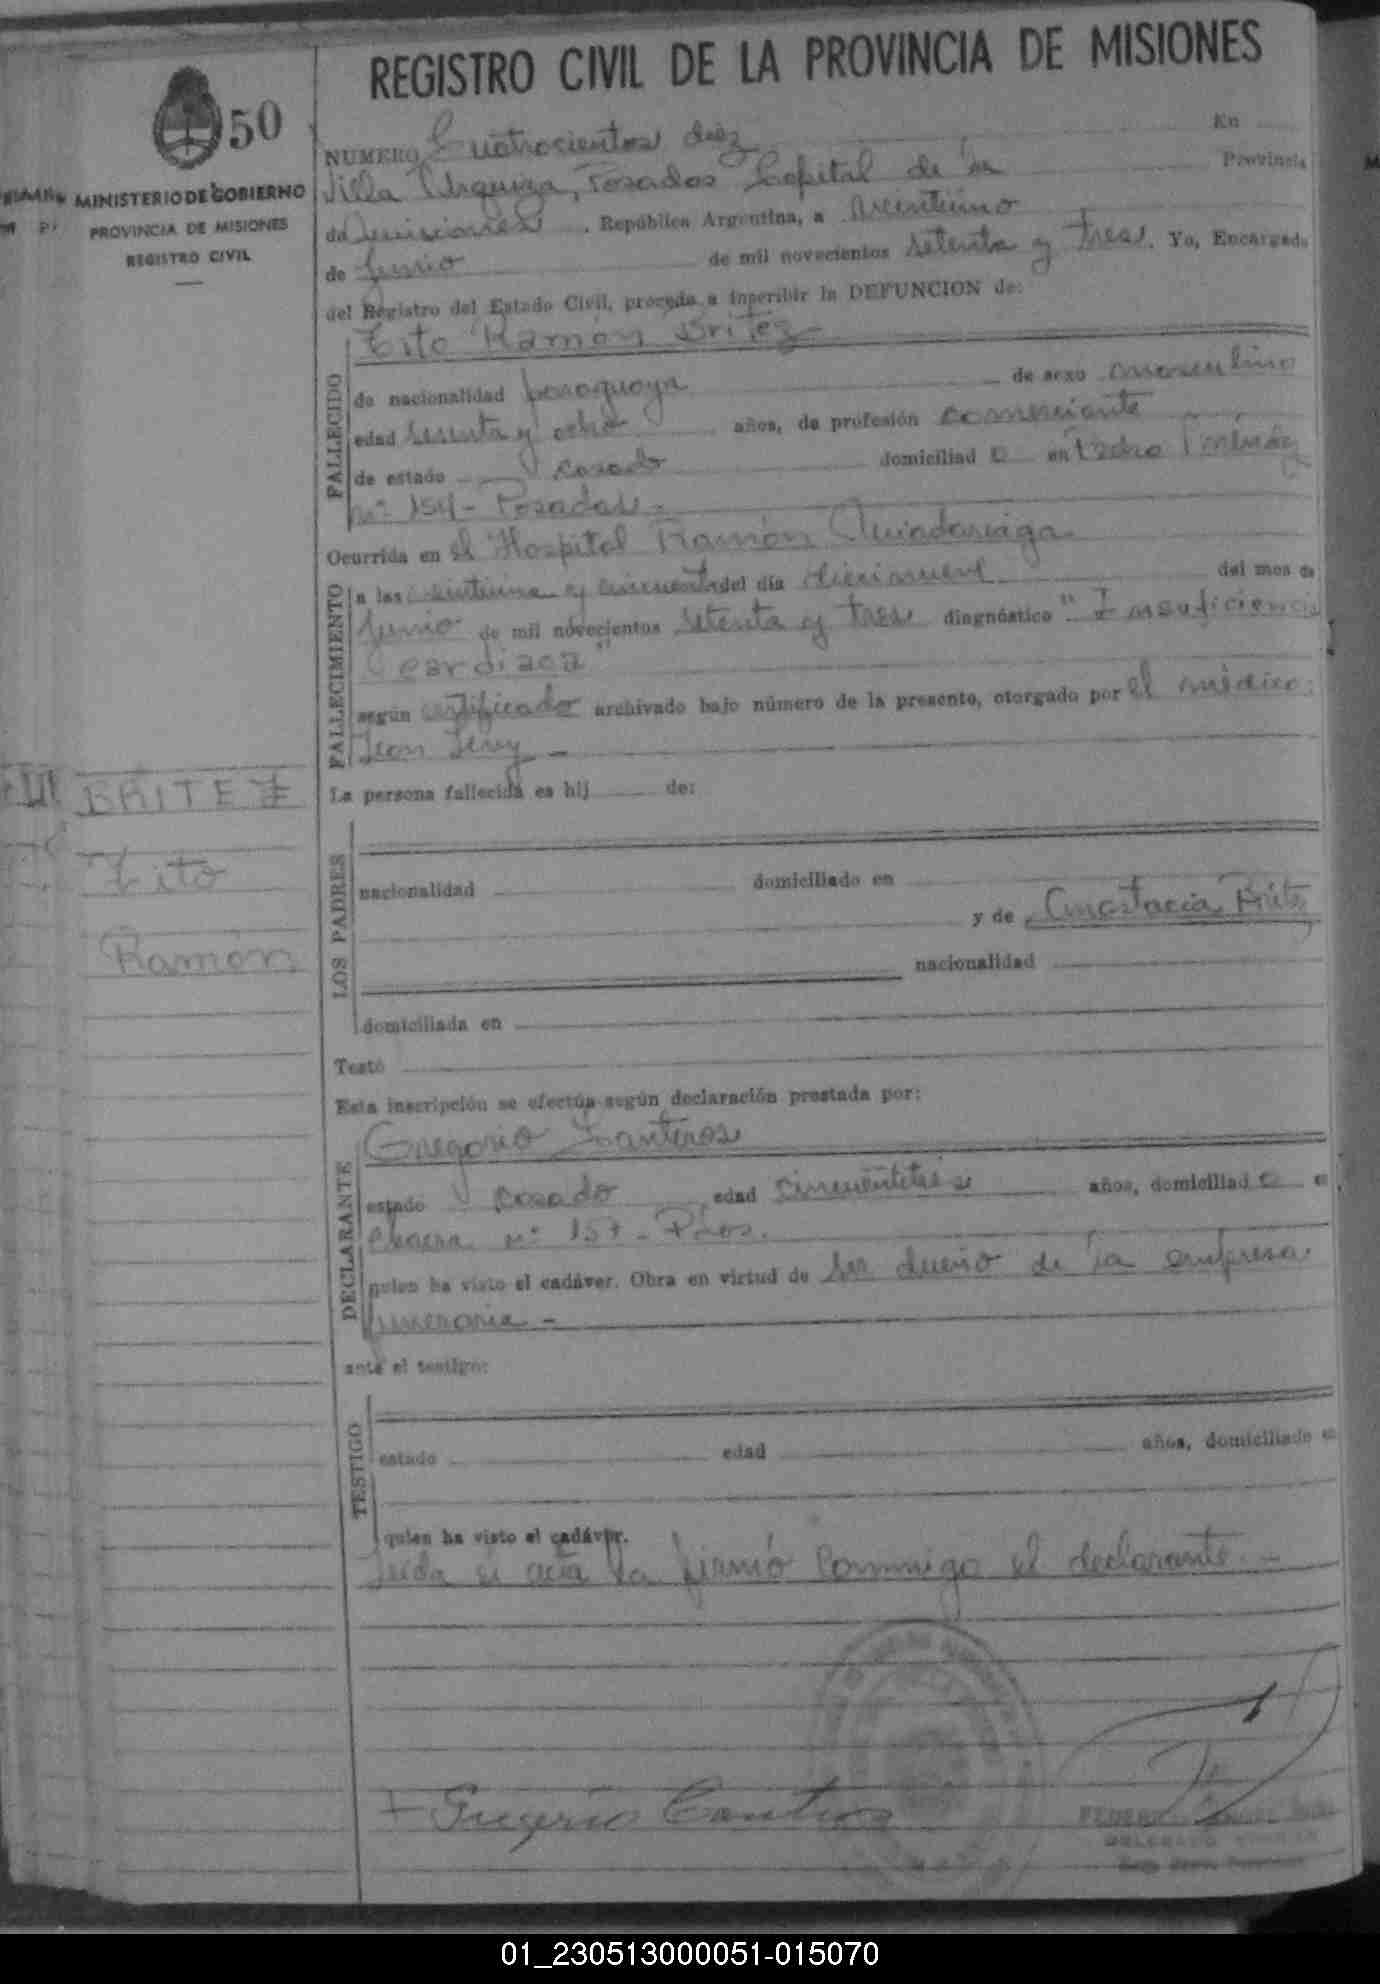 REGISTRO CIVIL DE LA PROVINCIA DE MISIONES
50
MINISTERIO DE GOBIERNO
PROVINCIA DE MISIONES
REGISTRO CIVIL
NUMERO Cuatrocientos diez En
Villa Urquiza, Posadas Capital de la Provincia
de Misiones, República Argentina, a veintiuno
de Junio de mil novecientos setenta y tres. Yo, Encargado
del Registro del Estado Civil, procedo a inscribir la DEFUNCION de:
Tito Ramón Britez
FALLECIDO
de nacionalidad paraguaya de sexo masculino
edad sesenta y ocho años, de profesión comerciante
de estado casado domiciliad o en Pedro Méndez
nº 154 - Posadas.
Ocurrida en el Hospital Ramón Madariaga
FALLECIMIENTO
a las veintiuna y cincuenta del día diecinueve del mes de
Junio de mil novecientos setenta y tres diagnóstico "Insuficiencia
cardiaca"
según certificado archivado bajo número de la presente, otorgado por el médico:
BRITEZ
Tito
Ramón
La persona fallecida es hij de:
LOS PADRES
nacionalidad domiciliado en
y de Anastacia Britez
nacionalidad
domiciliada en
Testó
Esta inscripción se efectúa según declaración prestada por:
Gregorio Canteros
DECLARANTE
estado casado edad cincuentitrés años, domiciliad o e
chacra nº 157 - Pdas.
quien ha visto el cadáver. Obra en virtud de ser dueño de la empresa
funeraria -
ante el testigo:
TESTIGO
estado edad años, domiciliado e
quien ha visto el cadáver.
Leida el acta la firmó conmigo el declarante. -
Gregorio Canteros
01_230513000051-015070